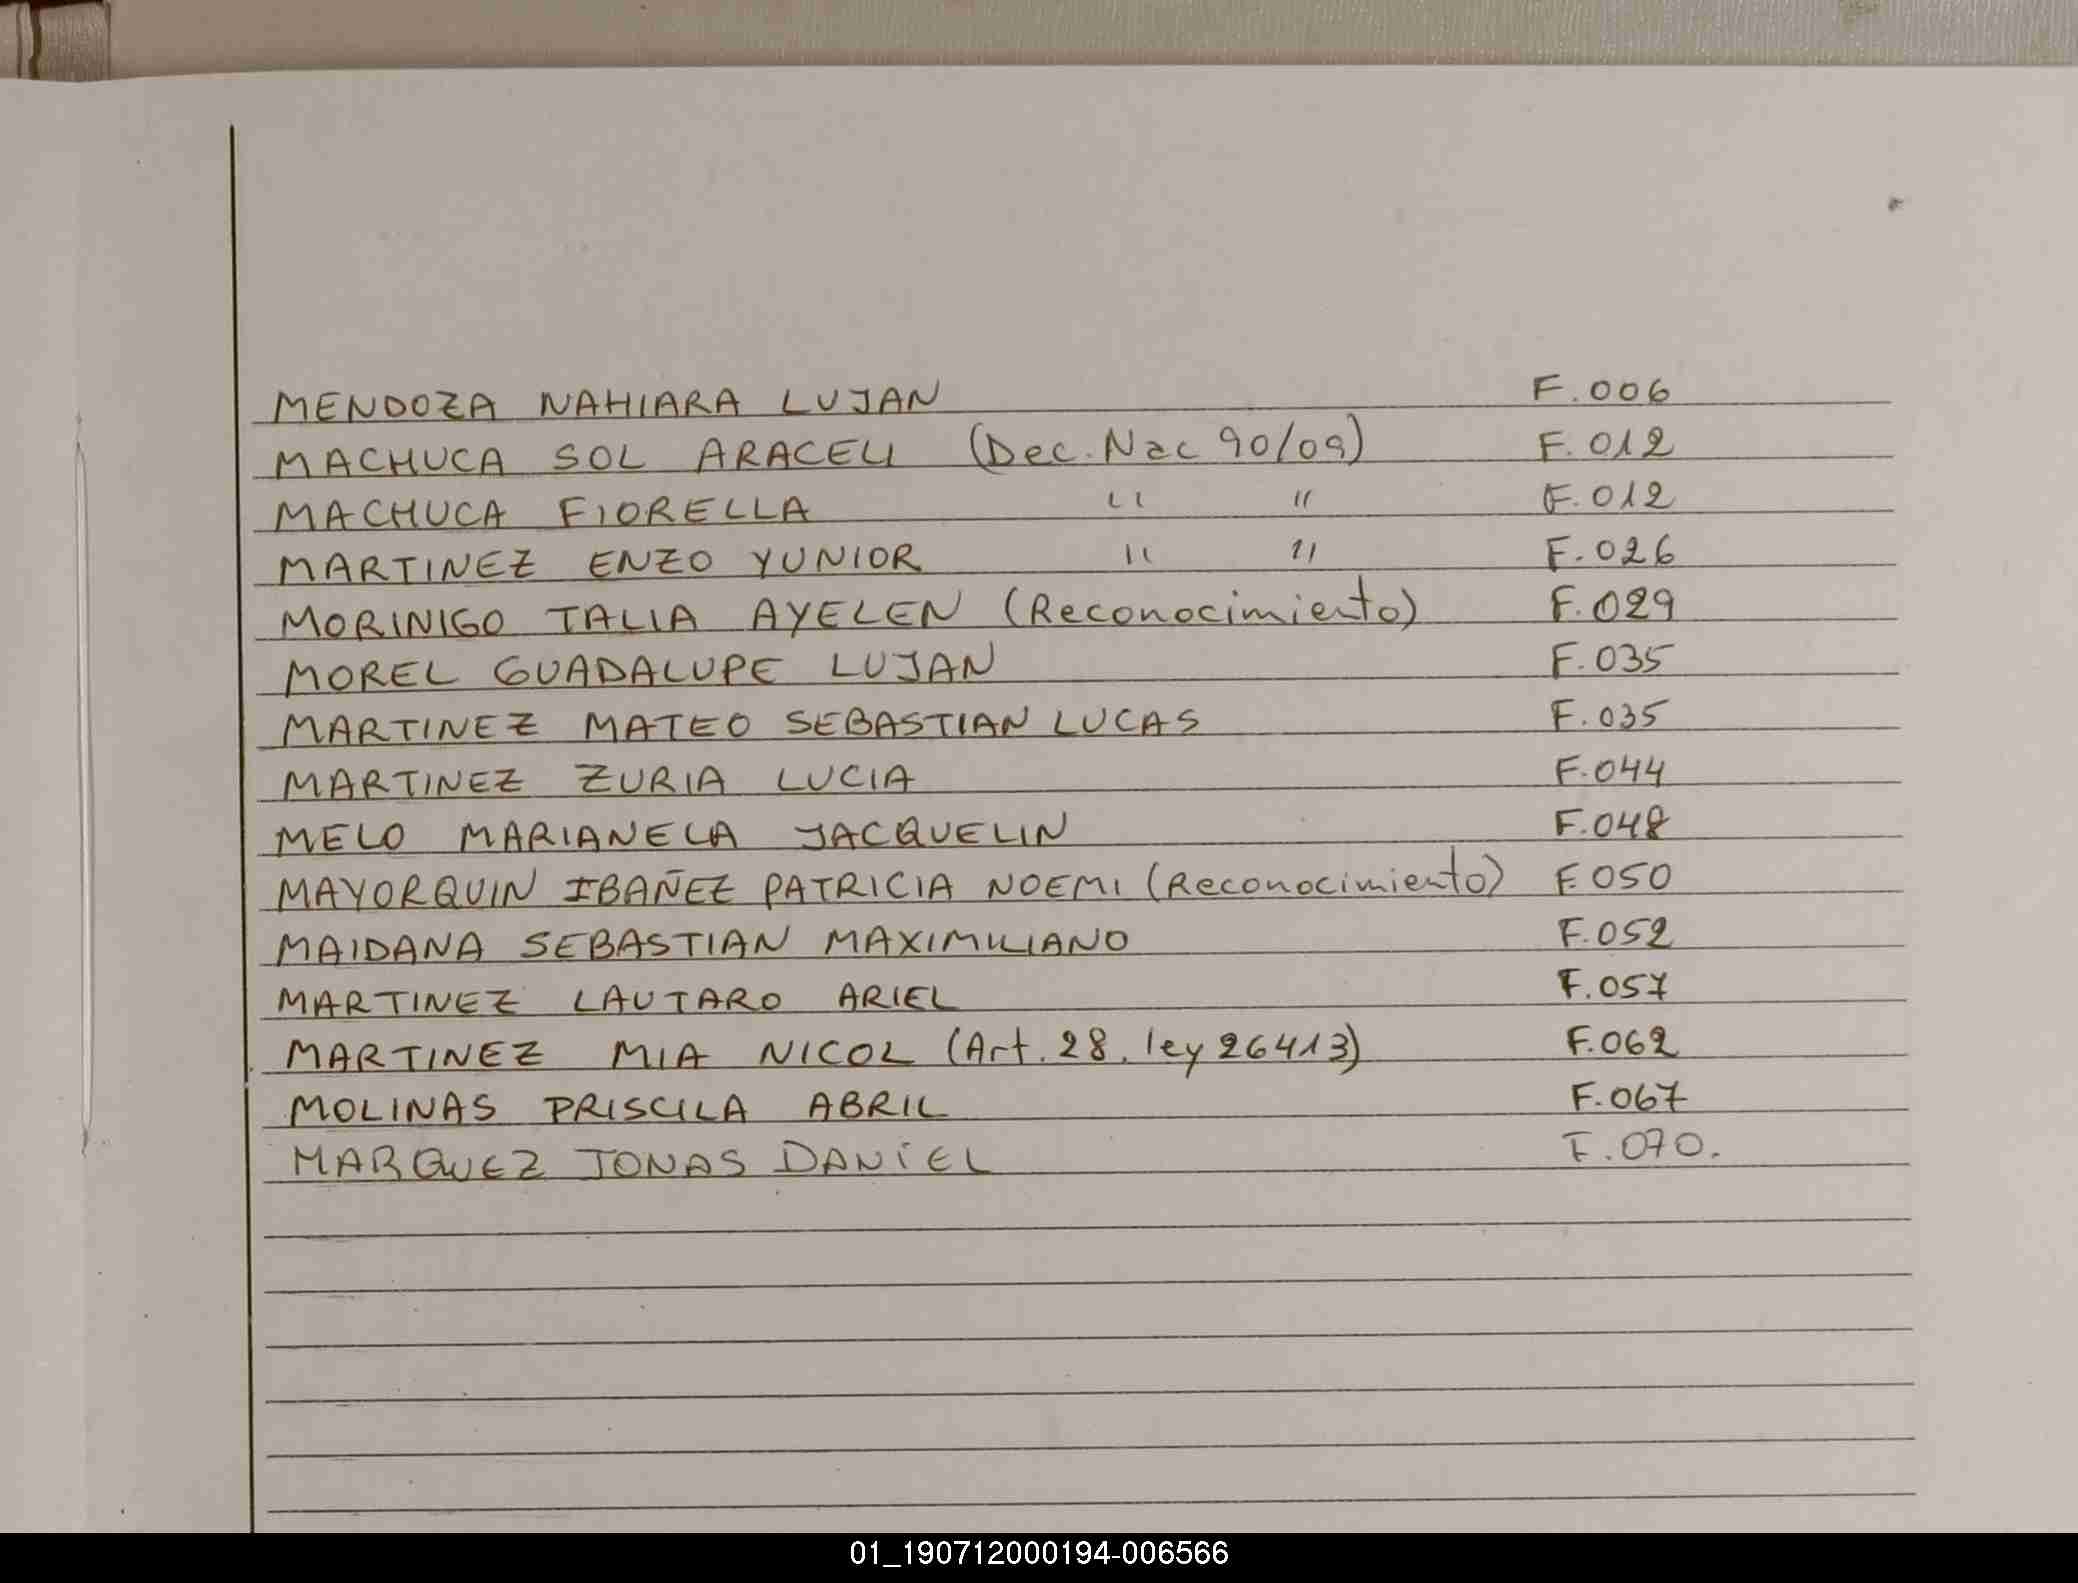 MENDOZA NAHIARA LUJAN F.006
MACHUCA SOL ARACELI (Dec. Nac 90/09) F.012
MACHUCA FIORELLA " " F.012
MARTINEZ ENZO YUNIOR " " F.026
MORINIGO TALIA AYELEN (Reconocimiento) F.029
MOREL GUADALUPE LUJAN F.035
MARTINEZ MATEO SEBASTIAN LUCAS F.035
MARTINEZ ZURIA LUCIA F.044
MELO MARIANELA JACQUELIN F.048
MAYORQUIN IBAÑEZ PATRICIA NOEMI (Reconocimiento) F.050
MAIDANA SEBASTIAN MAXIMILIANO F.052
MARTINEZ LAUTARO ARIEL F.057
MARTINEZ MIA NICOL (Art. 28. ley 26413) F.062
MOLINAS PRISCILA ABRIL F.067
MARQUEZ JONAS DANiEL F.070.
01_190712000194-006566